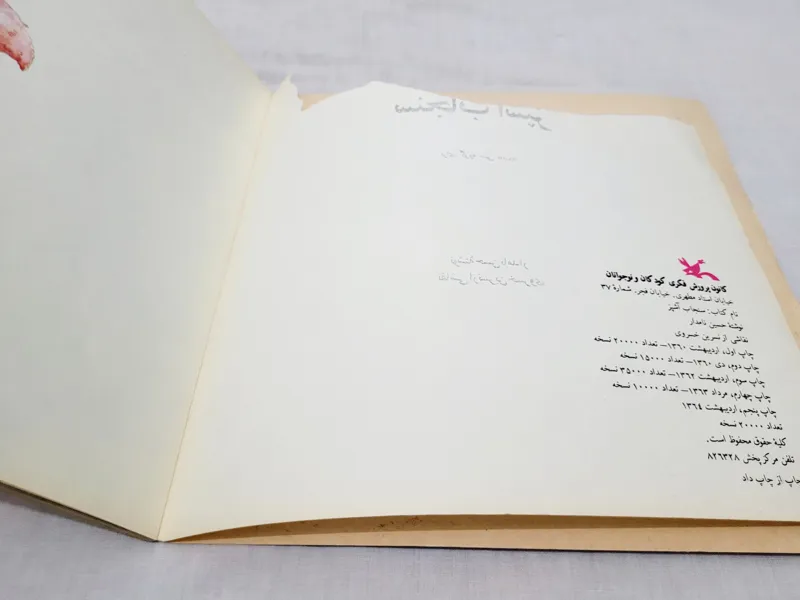 کانون پرورش فکری کودکان و نوجوانان
خیابان استاد مطهری، خیابان فجر، شمارهٔ ۳۷
نام کتاب: سنجاب اسیر
نوشتهٔ حسین نامدار
نقاشی از نسرین خسروی
چاپ اول، اردیبهشت ۱۳۶۰– تعداد ۲۰۰۰۰ نسخه
چاپ دوم، دی ۱۳۶۰– تعداد ۱۵۰۰۰ نسخه
چاپ سوم، اردیبهشت ۱۳۶۲– تعداد ۳۵۰۰۰ نسخه
چاپ چهارم، مرداد ۱۳۶۳– تعداد ۱۰۰۰۰ نسخه
چاپ پنجم، اردیبهشت ۱۳۶۴
تعداد ۲۰۰۰۰ نسخه
کلیهٔ حقوق محفوظ است.
تلفن مرکز پخش ۸۲۶۳۲۸
چاپ از چاپ داد